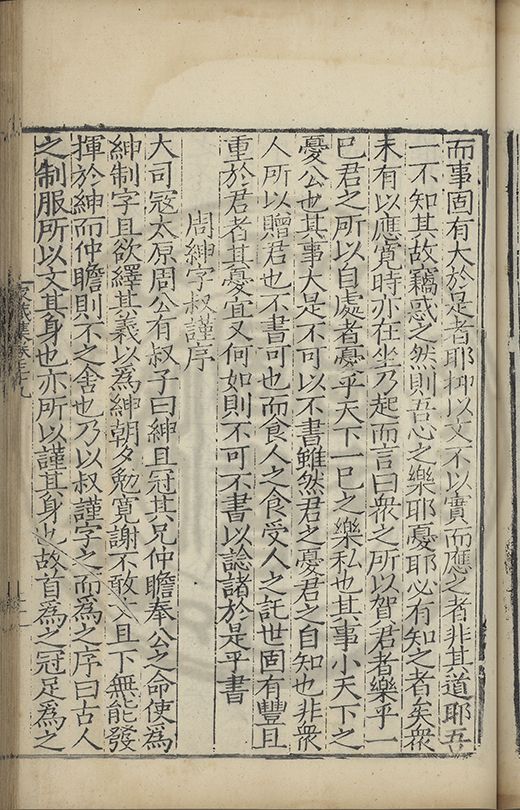 而事固有大於是者耶抑以文不以實而應之者非其道耶吾
一不知其故竊惑之然則吾心之樂耶憂耶必有知之者矣衆
未有以應寬時亦在坐乃起而言曰衆之所以賀君者樂乎一
巳君之所以自處者憂乎天下一巳之樂私也其事小天下之
憂公也其事大是不可以不書雖然君之憂君之自知也非衆
人所以贈君也不書可也而食人之食受人之託世固有豐且
重於君者其憂宜又何如則不可不書以諗諸於是乎書
周紳字叔謹序
大司寇太原周公有叔子曰紳且冠其兄仲瞻奉公之命使為
紳制字且欲繹其義以為紳朝夕勉寛謝不敢文且下無能發
揮於紳而仲瞻則不之舍也乃以叔謹字之而為之序曰古人
之制服所以文其身也亦所以謹其身也故首為之冠足為之